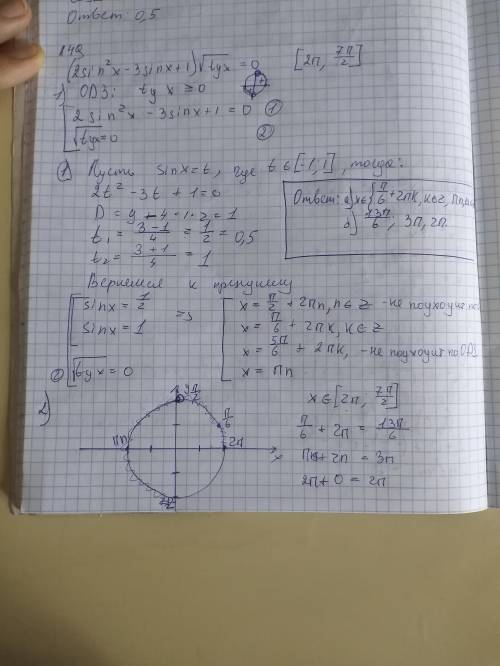 Ответ: 0,5
(2sin²x - 3sinx + 1)√tgx = 0 [2π, 7π/2]
1) ОДЗ: tg x ≥ 0
2sin²x - 3sinx + 1 = 0 ①
√tgx = 0 ②
① Пусть sinx = t, где t ∈ [-1; 1], тогда:
2t² - 3t + 1 = 0
D = 9 - 4·1·2 = 1
t₁ = (3-1)/4 = 1/2 = 0,5
t₂ = (3+1)/4 = 1
Ответ: а) π/6 + 2πk, k∈Z, πn
б) 13π/6, 3π, 2π.
Вернемся к
sinx = 1/2
sinx = 1
② √tgx = 0
=>
x = π/2 + 2πn, n∈Z - не подходит по
x = π/6 + 2πk, k∈Z
x = 5π/6 + 2πk, - не подходит по ОДЗ
x = πn
2)
πn
π/6
2π
x
x ∈ [2π, 7π/2]
π/6 + 2π = 13π/6
π + 2π = 3π
2π + 0 = 2π